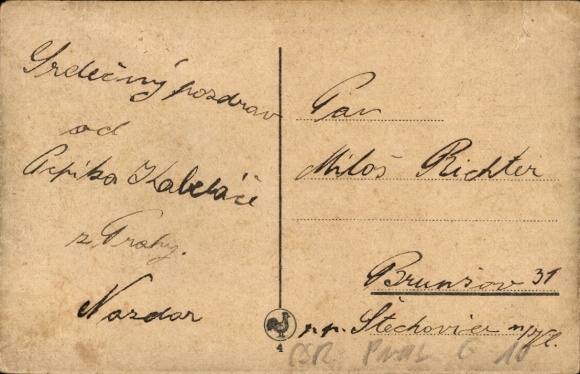 Srdečný pozdrav
od
Pepíka Kabeláče
z Prahy.
Nazdar
Pan
Miloš Richter
Brunšov 31
p.p. Štěchovice n/Vl.
4
ČSR